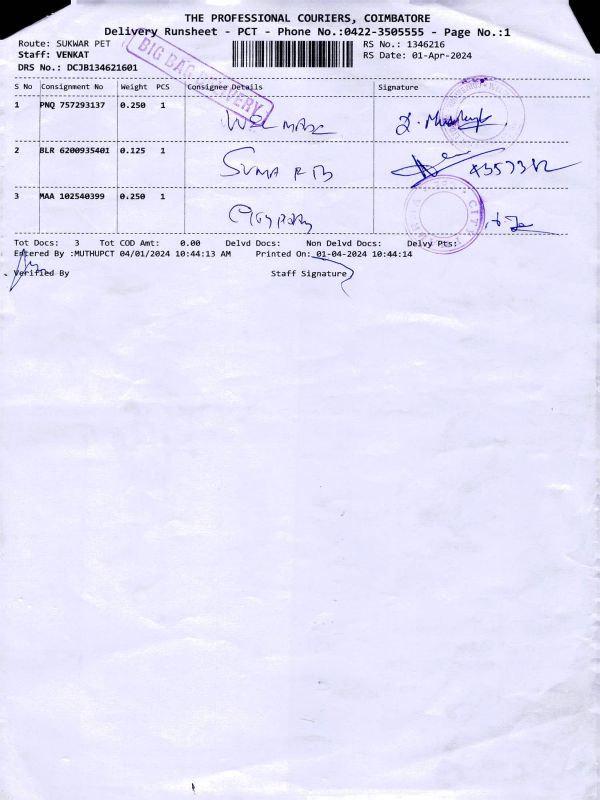 THE PROFESSIONAL COURIERS, COIMBATORE
Delivery Runsheet - PCT - Phone No.:0422-3505555 - Page No.:1
Route: SUKWAR PET RS No.: 1346216
Staff: VENKAT RS Date: 01-Apr-2024
DRS No.: DCJB134621601
BIG BAG DELIVERY
S No Consignment No Weight PCS Consignee Details Signature
1 PNQ 757293137 0.250 1
2 BLR 6200935401 0.125 1
3 MAA 102540399 0.250 1
Tot Docs: 3 Tot COD Amt: 0.00 Delvd Docs: Non Delvd Docs: Delvy Pts:
Entered By :MUTHUPCT 04/01/2024 10:44:13 AM Printed On: 01-04-2024 10:44:14
Verified By Staff Signature